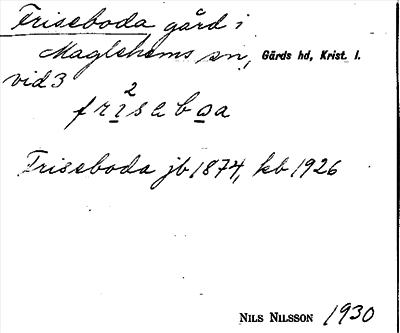 Friseboda gård i
Maglehems sn, Gärds hd, Krist. l.
vid 3
2
friseboa
Friseboda jb 1874, kb 1926
NILS NILSSON 1930